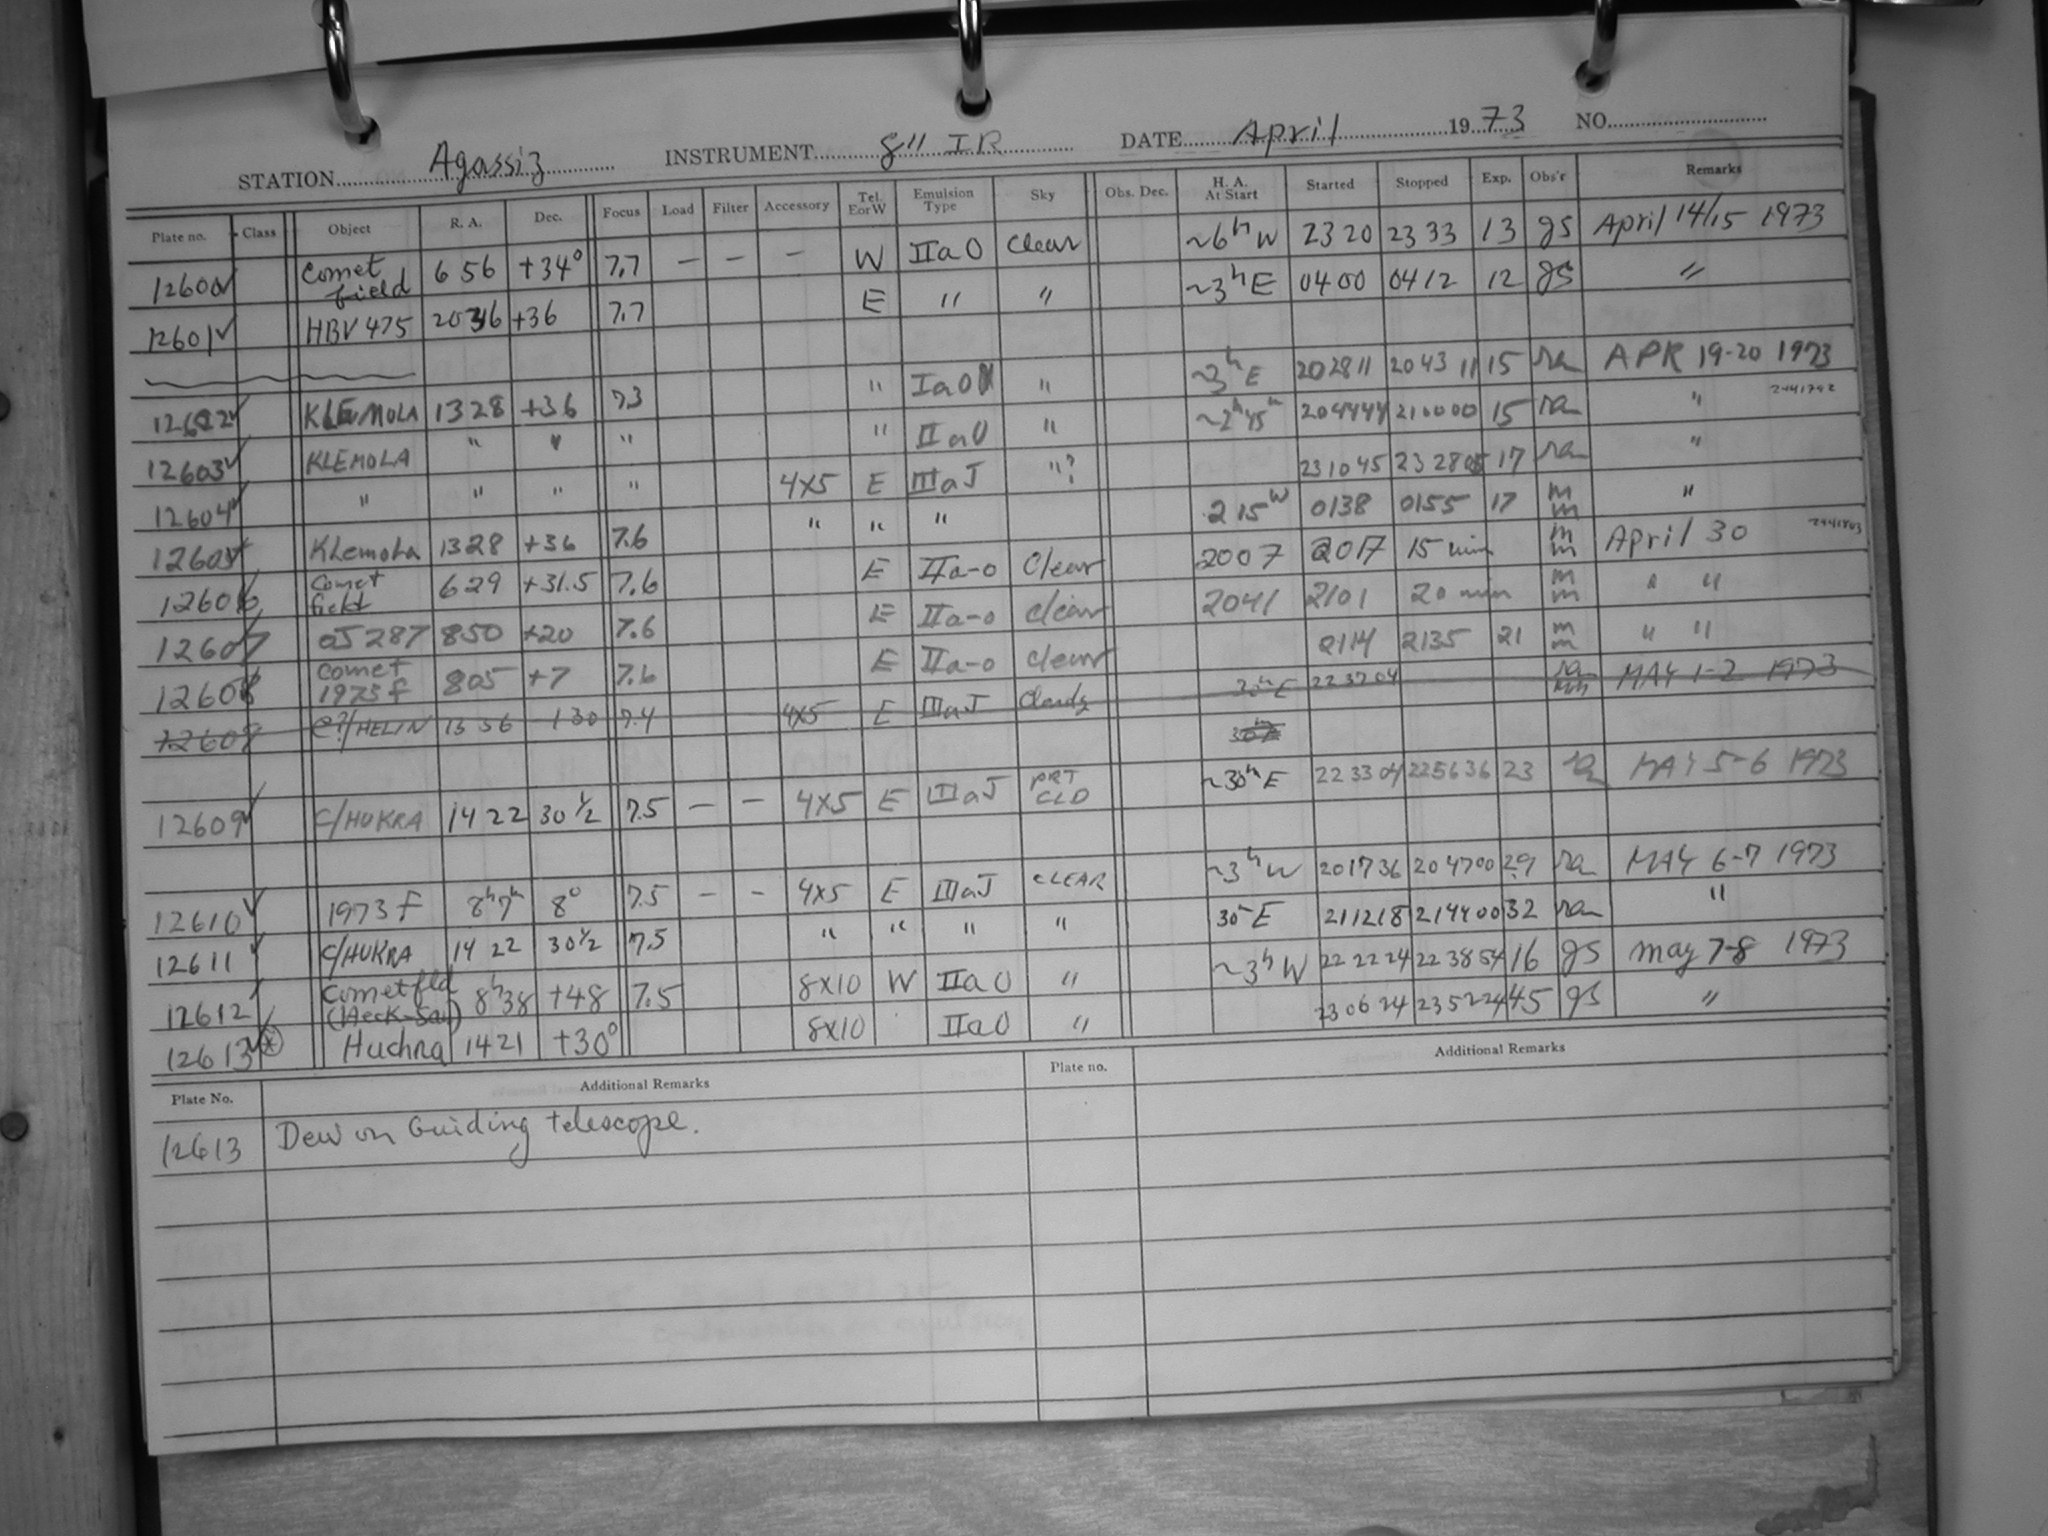 STATION Agassiz INSTRUMENT 8" IR DATE April 1973 NO.
Plate no. Class Object R. A. Dec. Focus Load Filter Accessory Tel. E or W Emulsion Type Sky Obs. Dec. H. A. At Start Started Stopped Exp. Obs'r Remarks
12600 ✓ Comet field 6 56 +34° 7.7 — — — W IIaO Clear ~6h W 23 20 23 33 13 gs April 14/15 1973
12601 ✓ HBV 475 20 36 +36 7.7 E " " ~3h E 04 00 04 12 12 gs "
12602 ✓ KLEMOLA 13 28 +36 7.3 " IaO " ~3h E 20 28 11 20 43 11 15 ra APR 19-20 1973
12603 ✓ KLEMOLA " " " " IIaO " ~2h45m 20 44 44 21 00 00 15 ra " 2441792
12604 ✓ " " " " 4x5 E IIIaJ "? 23 10 45 23 28 05 17 ra "
12605 Klemola 1328 +36 7.6 " " " 2 15 W 0138 0155 17 mm "
12606 Comet field 629 +31.5 7.6 E IIa-o Clear 2007 2017 15 min mm April 30 2441803
12607 OJ 287 850 +20 7.6 E IIa-o clear 2041 2101 20 min mm " "
12608 Comet 1973f 805 +7 7.6 E IIa-o clear 2114 2135 21 mm " "
12608 C?/HELIN 13 56 -1 30 7.4 4x5 E IIIaJ Cloudy 22 37 04 ra MAY 1-2 1973
12609 ✓ C/HUKRA 14 22 30 1/2 7.5 — — 4x5 E IIIaJ PRT CLD ~30m E 22 33 04 22 56 36 23 ra MAY 5-6 1973
12610 ✓ 1973 f 8h 7m 8° 7.5 - - 4x5 E IIIaJ CLEAR ~3h W 20 17 36 20 47 00 29 ra MAY 6-7 1973
12611 ✓ C/HUKRA 14 22 30 1/2 7.5 " " " " 30m E 21 12 18 21 44 00 32 ra "
12612 ✓ Comet fld (Heck-Sau) 8h38 +48 7.5 8x10 W IIaO " ~3h W 22 22 24 22 38 54 16 gs May 7-8 1973
12613 ✓ * Huchra 14 21 +30° 8x10 IIaO " 23 06 24 23 52 24 45 gs "
Plate No. Additional Remarks Plate no. Additional Remarks
12613 Dew on Guiding telescope.